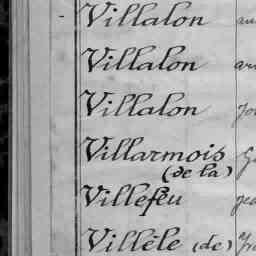 Villalon
Villalon
Villalon
Villarmois
(de la)
Villefeu
Villèle (de)